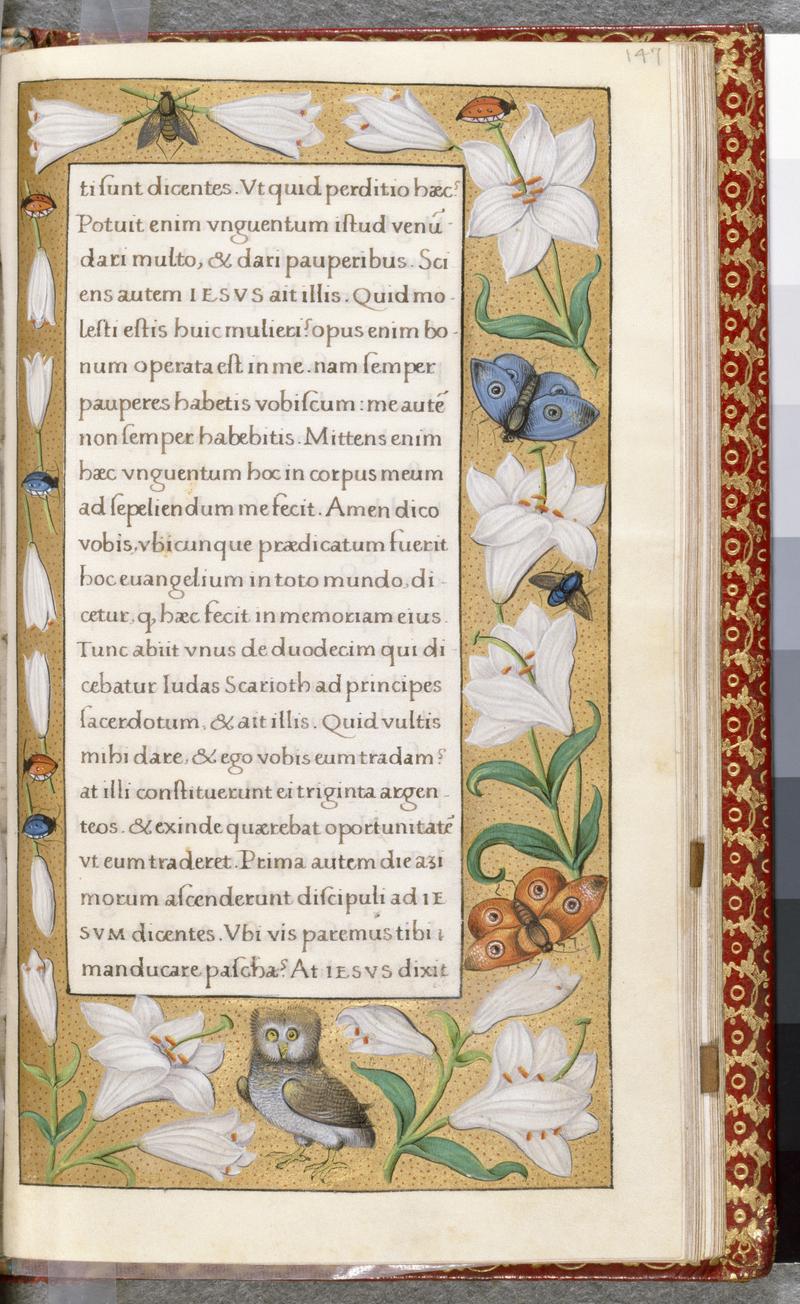 147
ti ſunt dicentes. Vt quid perditio hæc?
Potuit enim vnguentum iſtud venū-
dari multo, & dari pauperibus. Sci
ens autem IESVS ait illis. Quid mo-
leſti eſtis huic mulieri? opus enim bo-
num operata eſt in me. nam ſemper
pauperes habetis vobiſcum: me autē
non ſemper habebitis. Mittens enim
hæc vnguentum hoc in corpus meum
ad ſepeliendum me fecit. Amen dico
vobis, vbicunque prædicatum fuerit
hoc euangelium in toto mundo, di-
cetur, q, hæc fecit in memoriam eius.
Tunc abiit vnus de duodecim qui di
cebatur Iudas Scarioth ad principes
ſacerdotum, & ait illis. Quid vultis
mihi dare, & ego vobis eum tradam?
at illi conſtituerunt ei triginta argen-
teos. & exinde quærebat oportunitatē
vt eum traderet. Prima autem die azi
morum aſcenderunt diſcipuli ad IE
SVM dicentes. Vbi vis paremus tibi i
manducare paſcha? At IESVS dixit